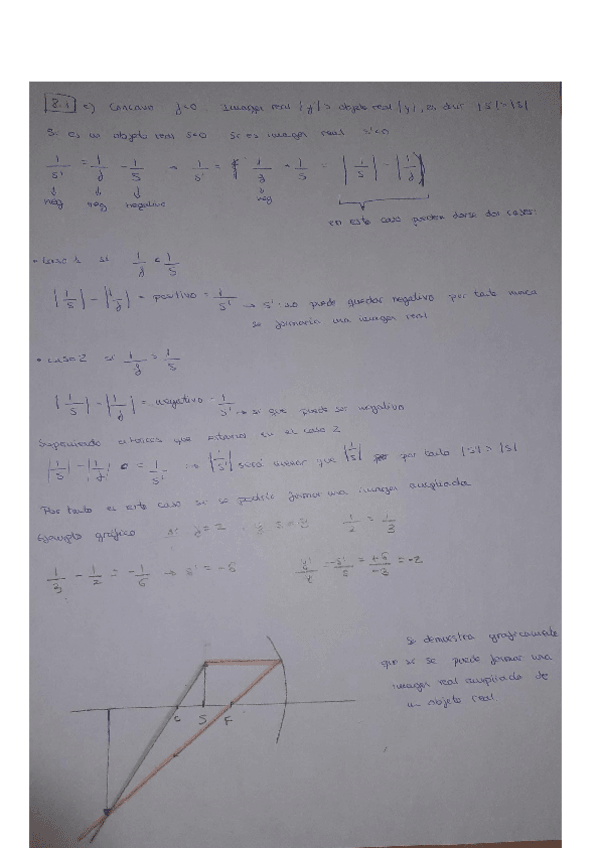 2.1 c) Concavo f<0 Imagen real |y'| > objeto real |y|, es decir |s'|>|s|
Si es un objeto real s<0 Si es imagen real s'<0
1/s' = 1/f - 1/s → 1/s' = 1/f + 1/s = |1/s| - |1/f|
neg neg negativo neg
en este caso pueden darse dos casos:
• Caso 1 si 1/f < 1/s
|1/s| - |1/f| = positivo = 1/s' → s' no puede quedar negativo por tanto nunca
se formaría una imagen real
• caso 2 si 1/f > 1/s
|1/s| - |1/f| = negativo = 1/s' → si que puede ser negativo
Suponiendo entonces que estamos en el caso 2
|1/s| - |1/f| = 1/s' → |1/s'| será menor que |1/s| por tanto |s'| > |s|
Por tanto es este caso si se podría formar una imagen ampliada
Ejemplo gráfico si f=2 y s=3 1/2 = 1/3
1/3 - 1/2 = -1/6 → s' = -6 y'/y = -s'/s = +6/-3 = -2
Se demuestra graficamente
que si se puede formar una
imagen real ampliada de
un objeto real
C S F